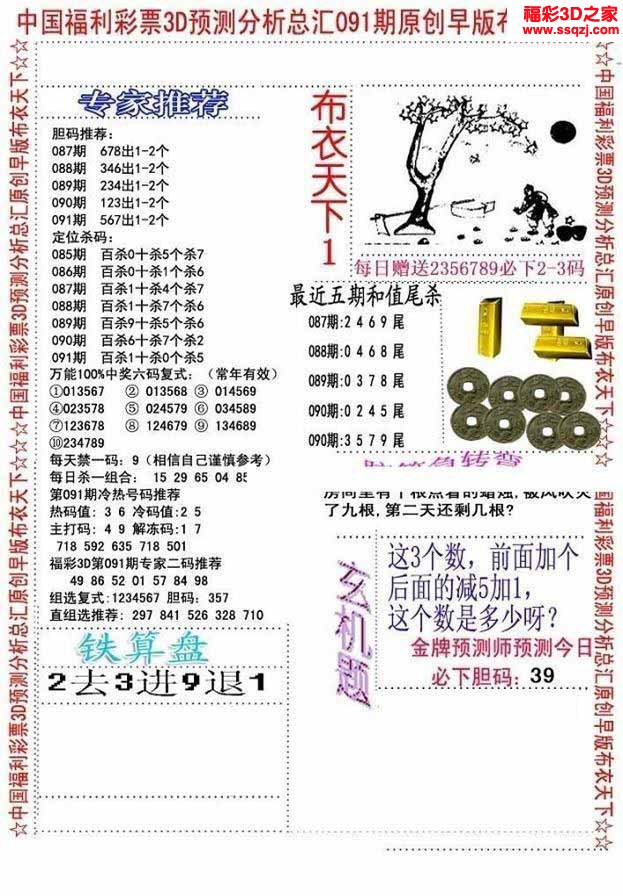 中国福利彩票3D预测分析总汇091期原创早版布
福彩3D之家
www.ssqzj.com
☆中国福利彩票3D预测分析总汇原创早版布衣天下☆☆☆中国福利彩票3D预测分析总汇原创早版布衣天下☆☆
专家推荐
胆码推荐:
087期 678出1-2个
088期 346出1-2个
089期 234出1-2个
090期 123出1-2个
091期 567出1-2个
定位杀码:
085期 百杀0十杀5个杀7
086期 百杀0十杀1个杀6
087期 百杀1十杀4个杀7
088期 百杀1十杀7个杀6
089期 百杀6十杀5个杀6
090期 百杀9十杀7个杀2
091期 百杀1十杀0个杀5
万能100%中奖六码复式: (常年有效)
①013567 ② 013568 ③ 014569
④023578 ⑤ 024579 ⑥ 034589
⑦123678 ⑧ 124679 ⑨ 134689
⑩234789
每天禁一码: 9 (相信自己谨慎参考)
每日杀一组合: 15 29 65 04 85
第091期冷热号码推荐
热码值: 3 6 冷码值: 2 5
主打码: 4 9 解冻码: 1 7
718 592 635 718 501
福彩3D第091期专家二码推荐
49 86 52 01 57 84 98
组选复式:1234567 胆码: 357
直组选推荐: 297 841 526 328 710
铁算盘
2去3进9退1
布衣天下1
每日赠送2356789必下2-3码
最近五期和值尾杀
087期:2 4 6 9 尾
088期:0 4 6 8 尾
089期:0 3 7 8 尾
090期:0 2 4 5 尾
090期:3 5 7 9 尾
脑筋急转弯
房间里有十根点着的蜡烛,被风吹灭
了九根,第二天还剩几根?
玄机题
这3个数,前面加个
后面的减5加1,
这个数是多少呀?
金牌预测师预测今日
必下胆码: 39
☆☆中国福利彩票3D预测分析总汇原创早版布衣天下☆☆☆
国福利彩票3D预测分析总汇原创早版布衣天下☆